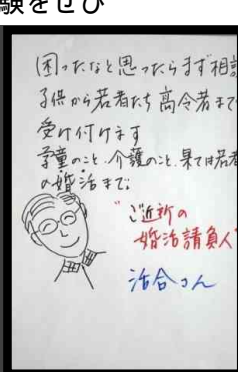 験をぜひ
困ったなと思ったらまず相談
子供から若者たち高令者まで
受け付けます
学童のこと、介護のこと、果ては若者
の婚活まで。
"ご近所の
婚活請負人"